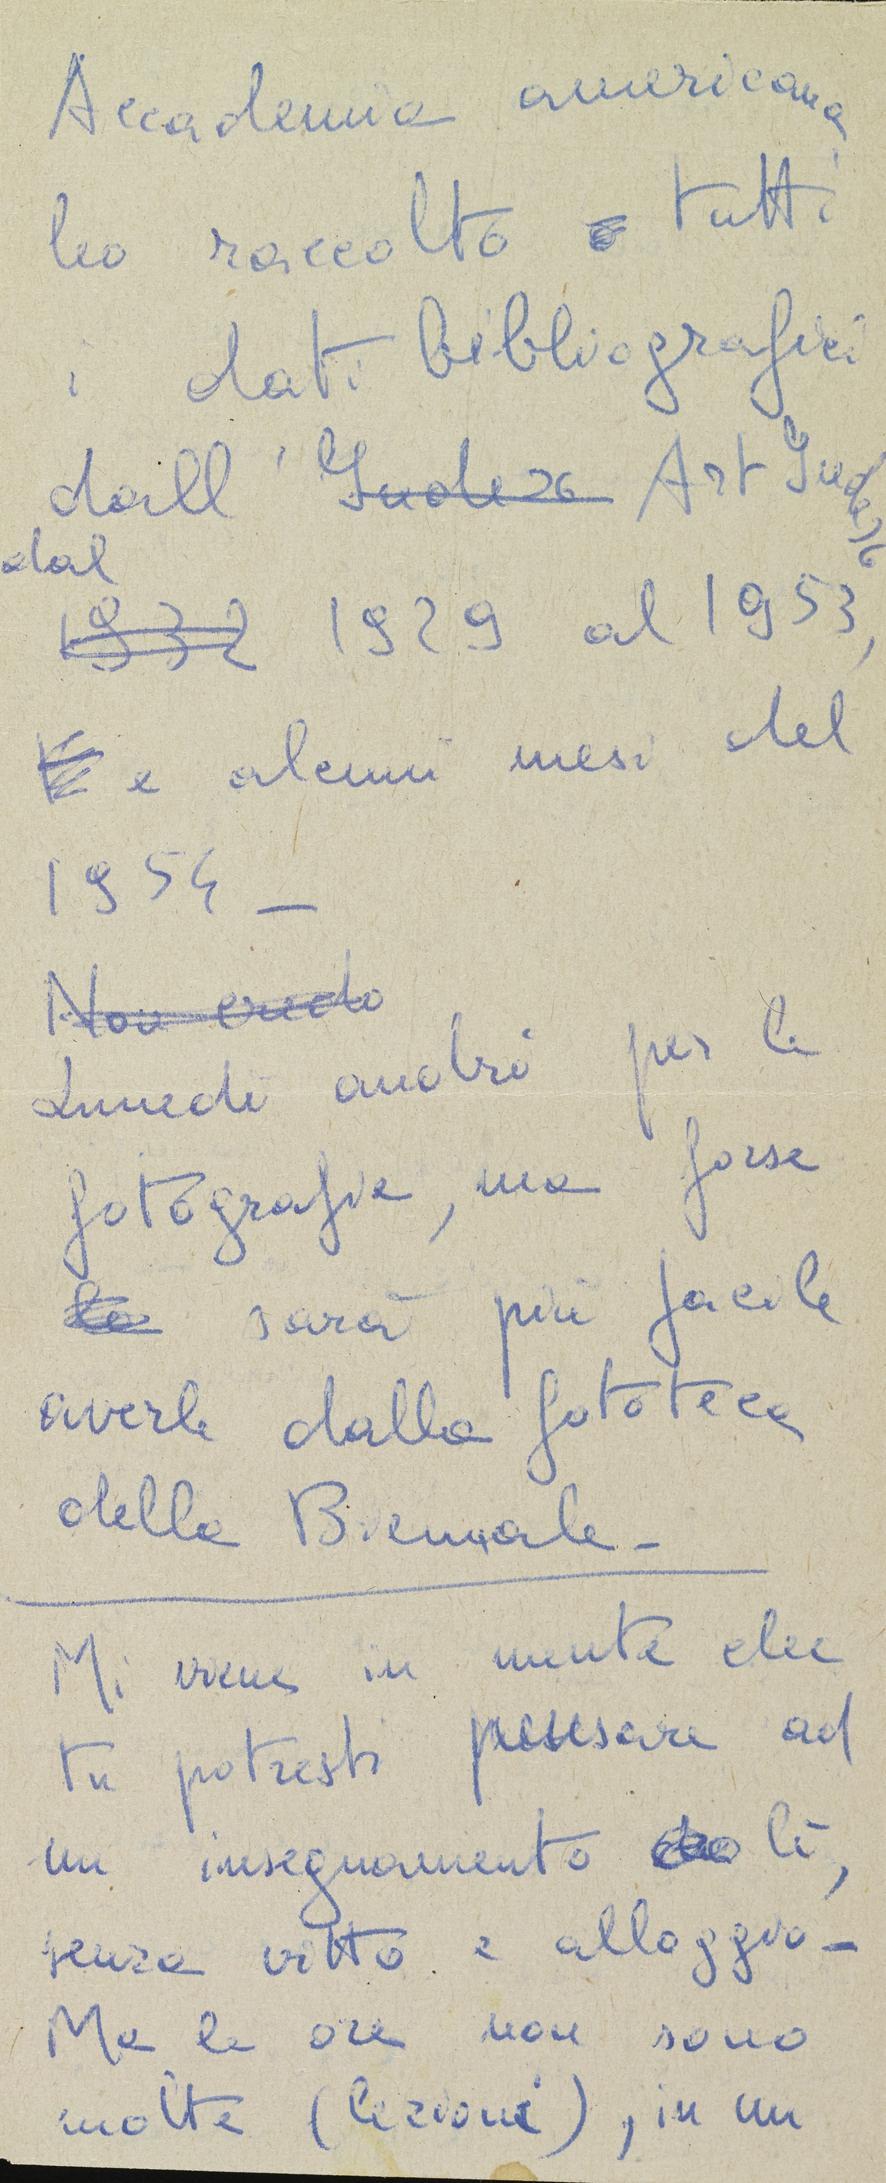 Accademia americana
ho raccolto tutti
i dati bibliografici
dall' Index Art Index
dal
1932 1929 al 1953,
e alcuni mesi del
1954 -
Non credo
Lunedì andrò per le
fotografie, ma forse
sarà più facile
averle dalla fototeca
della Biennale -
Mi viene in mente che
tu potresti pensare ad
un insegnamento lì,
senza vitto e alloggio -
Ma le ore non sono
molte (lezioni), in un